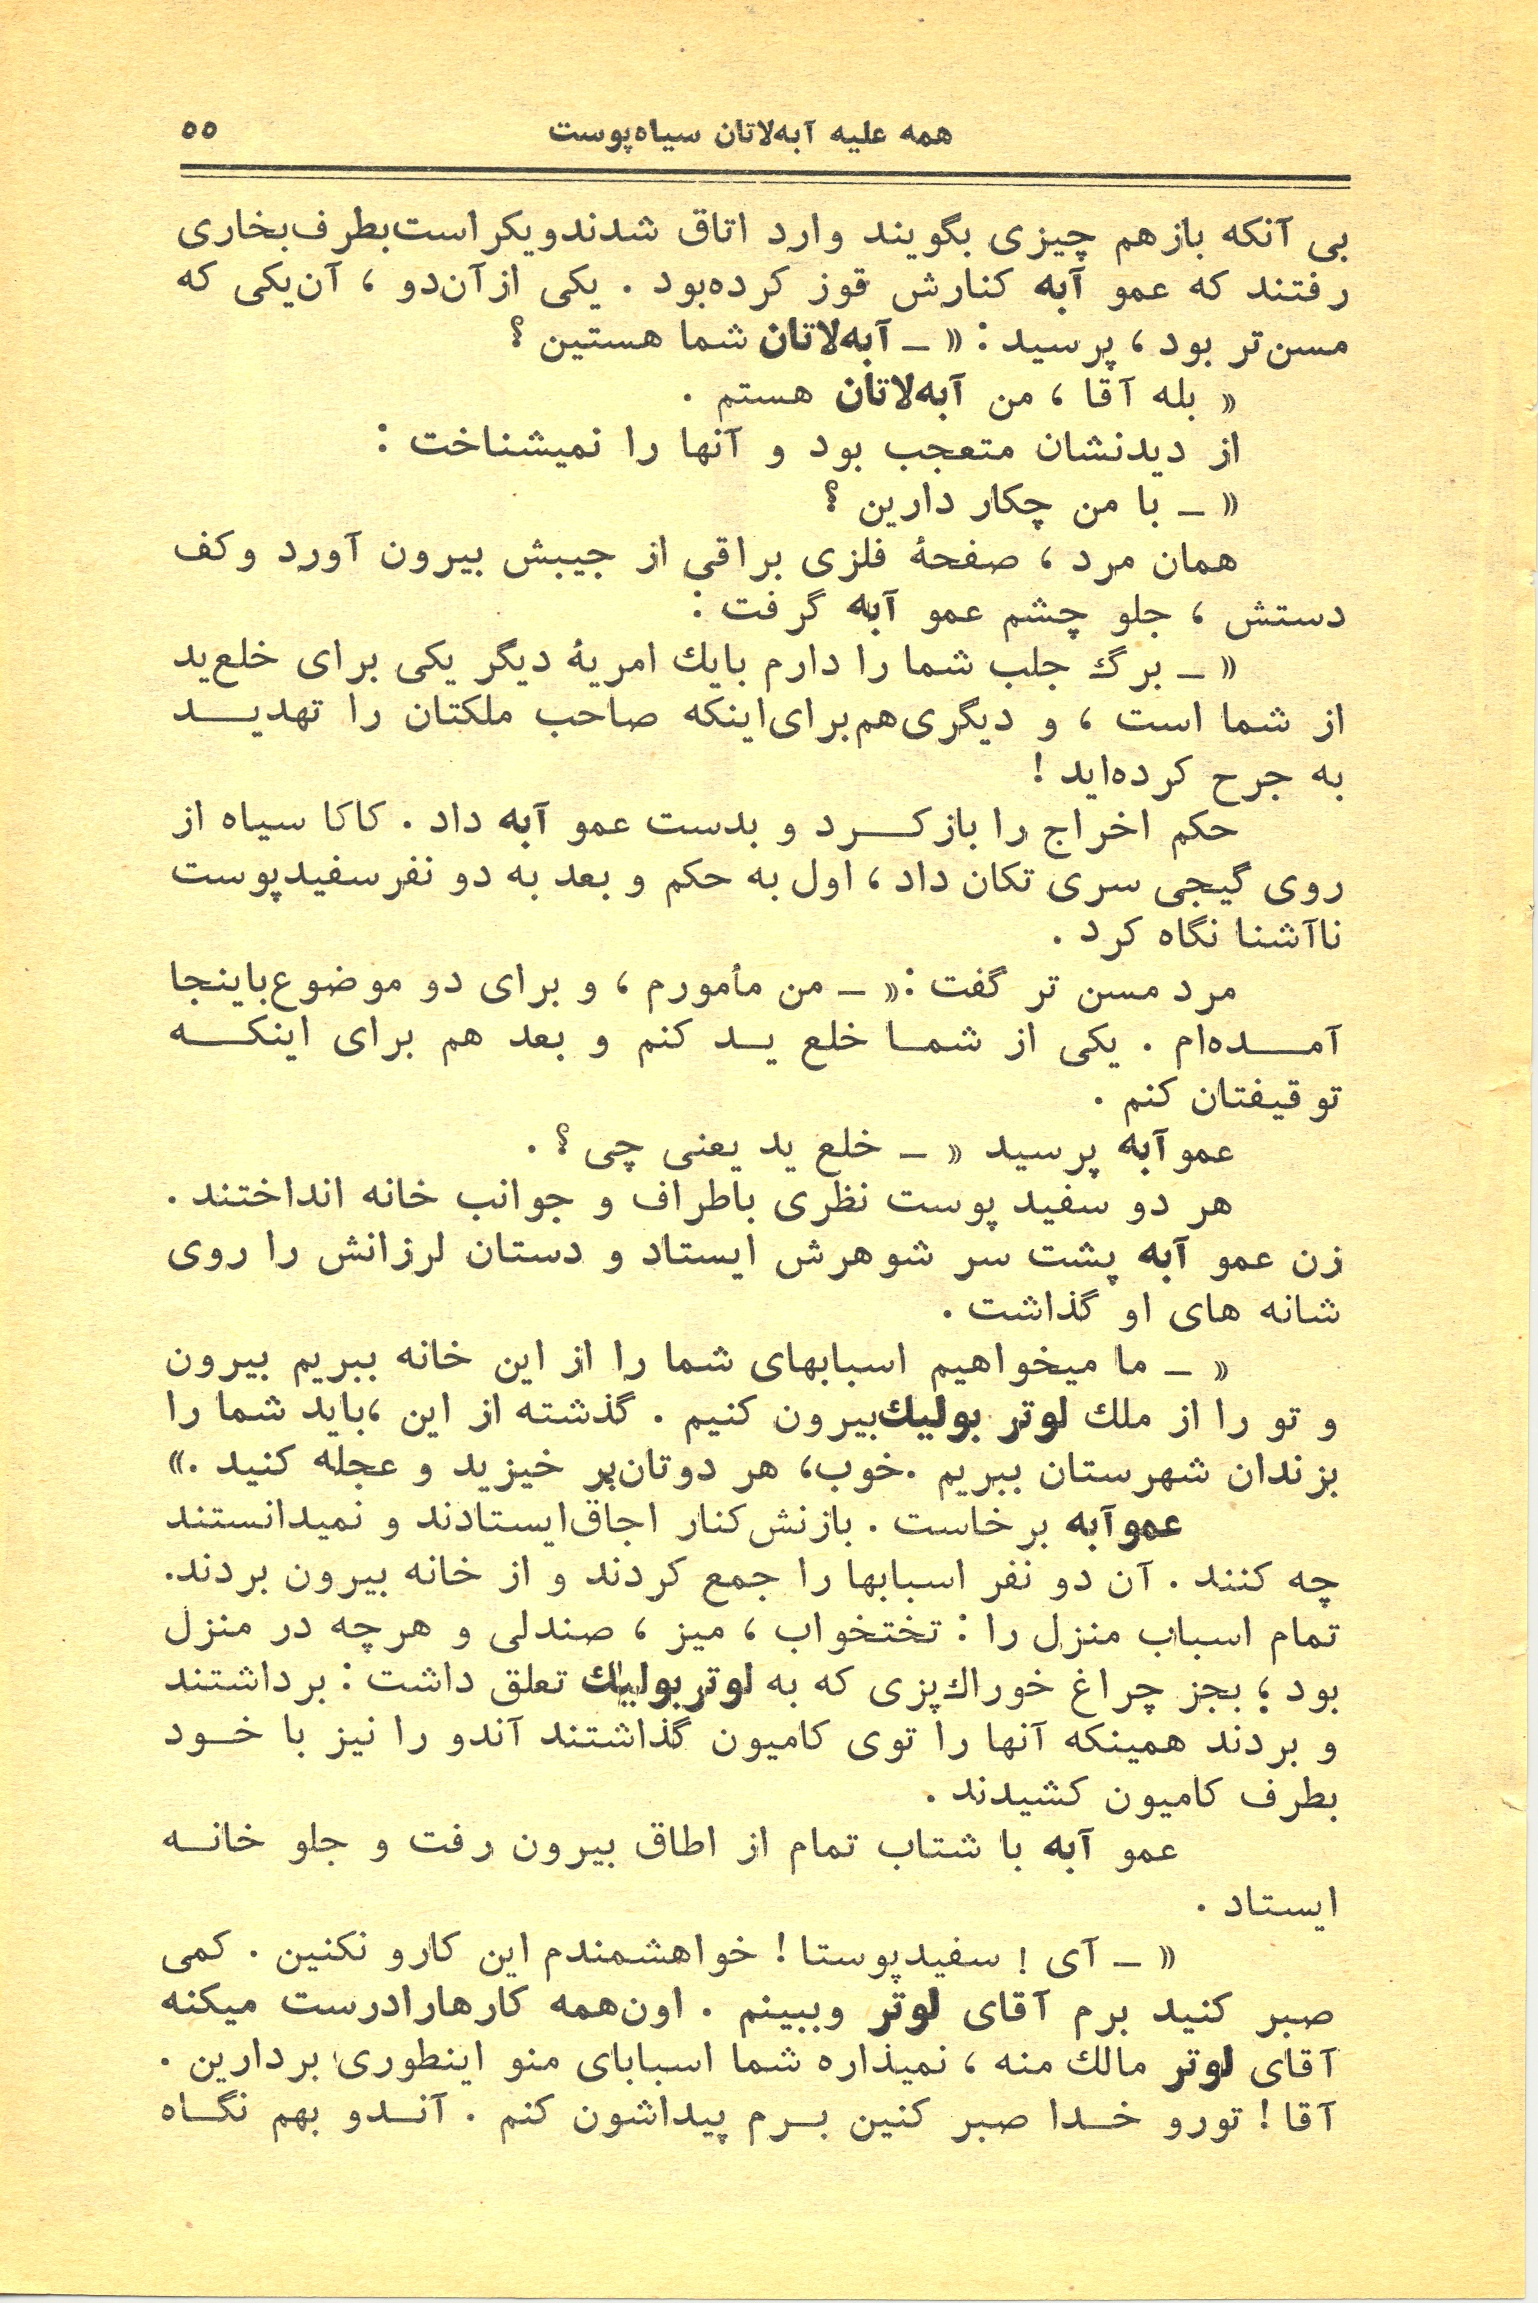 همه علیه آبه‌لاتان سیاه‌پوست ۵۵
بی آنکه بازهم چیزی بگویند وارد اتاق شدندویکراست‌بطرف‌بخاری
رفتند که عمو آبه کنارش قوز کرده‌بود . یکی ازآن‌دو ، آن‌یکی که
مسن‌تر بود ، پرسید : « ــ آبه‌لاتان شما هستین ؟
« بله آقا ، من آبه‌لاتان هستم .
از دیدنشان متعجب بود و آنها را نمیشناخت :
« ــ با من چکار دارین ؟
همان مرد ، صفحهٔ فلزی براقی از جیبش بیرون آورد وکف
دستش ، جلو چشم عمو آبه گرفت :
« ــ برگ جلب شما را دارم بایك امریهٔ دیگر یکی برای خلع‌ید
از شما است ، و دیگری‌هم‌برای‌اینکه صاحب ملکتان را تهدیــد
به جرح کرده‌اید !
حکم اخراج را بازکــرد و بدست عمو آبه داد . کاکا سیاه از
روی گیجی سری تکان داد ، اول به حکم و بعد به دو نفرسفیدپوست
ناآشنا نگاه کرد .
مرد مسن تر گفت :« ــ من مأمورم ، و برای دو موضوع‌باینجا
آمــده‌ام . یکی از شمــا خلع یــد کنم و بعد هم برای اینکــه
توقیفتان کنم .
عموآبه پرسید « ــ خلع ید یعنی چی ؟ .
هر دو سفید پوست نظری باطراف و جوانب خانه انداختند .
زن عمو آبه پشت سر شوهرش ایستاد و دستان لرزانش را روی
شانه های او گذاشت .
« ــ ما میخواهیم اسبابهای شما را از این خانه ببریم بیرون
و تو را از ملك لوتر بولیك‌بیرون کنیم . گذشته از این ،باید شما را
بزندان شهرستان ببریم .خوب، هر دوتان‌بر خیزید و عجله کنید .»
عموآبه برخاست . بازنش‌کنار اجاق‌ایستادند و نمیدانستند
چه کنند . آن دو نفر اسبابها را جمع کردند و از خانه بیرون بردند.
تمام اسباب منزل را : تختخواب ، میز ، صندلی و هرچه در منزل
بود ؛ بجز چراغ خوراك‌پزی که به لوتربولیك تعلق داشت : برداشتند
و بردند همینکه آنها را توی کامیون گذاشتند آندو را نیز با خــود
بطرف کامیون کشیدند .
عمو آبه با شتاب تمام از اطاق بیرون رفت و جلو خانــه
ایستاد .
« ــ آی ! سفیدپوستا ! خواهشمندم این کارو نکنین . کمی
صبر کنید برم آقای لوتر وببینم . اون‌همه کارهارادرست میکنه
آقای لوتر مالك منه ، نمیذاره شما اسبابای منو اینطوری بردارین .
آقا ! تورو خــدا صبر کنین بــرم پیداشون کنم . آنــدو بهم نگــاه